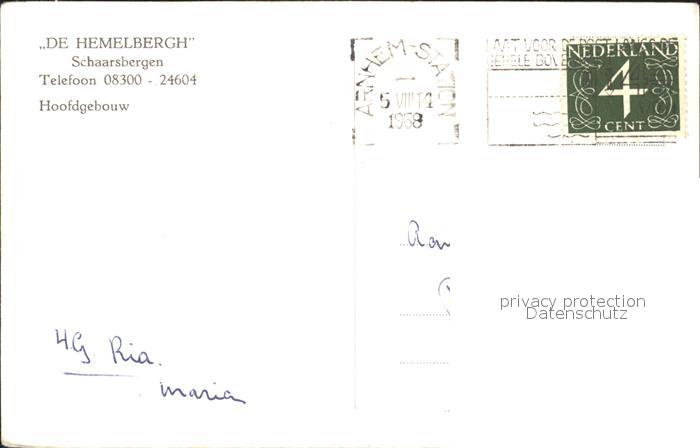 „DE HEMELBERGH"
Schaarsbergen
Telefoon 08300 - 24604
Hoofdgebouw
ARNHEM-STATION
5 VIII 14
1958
LAAT VOOR DE POST LANGS DE
GEHELE BOVE
NEDERLAND
4
CENT
privacy protection
Datenschutz
Ria.
Maria